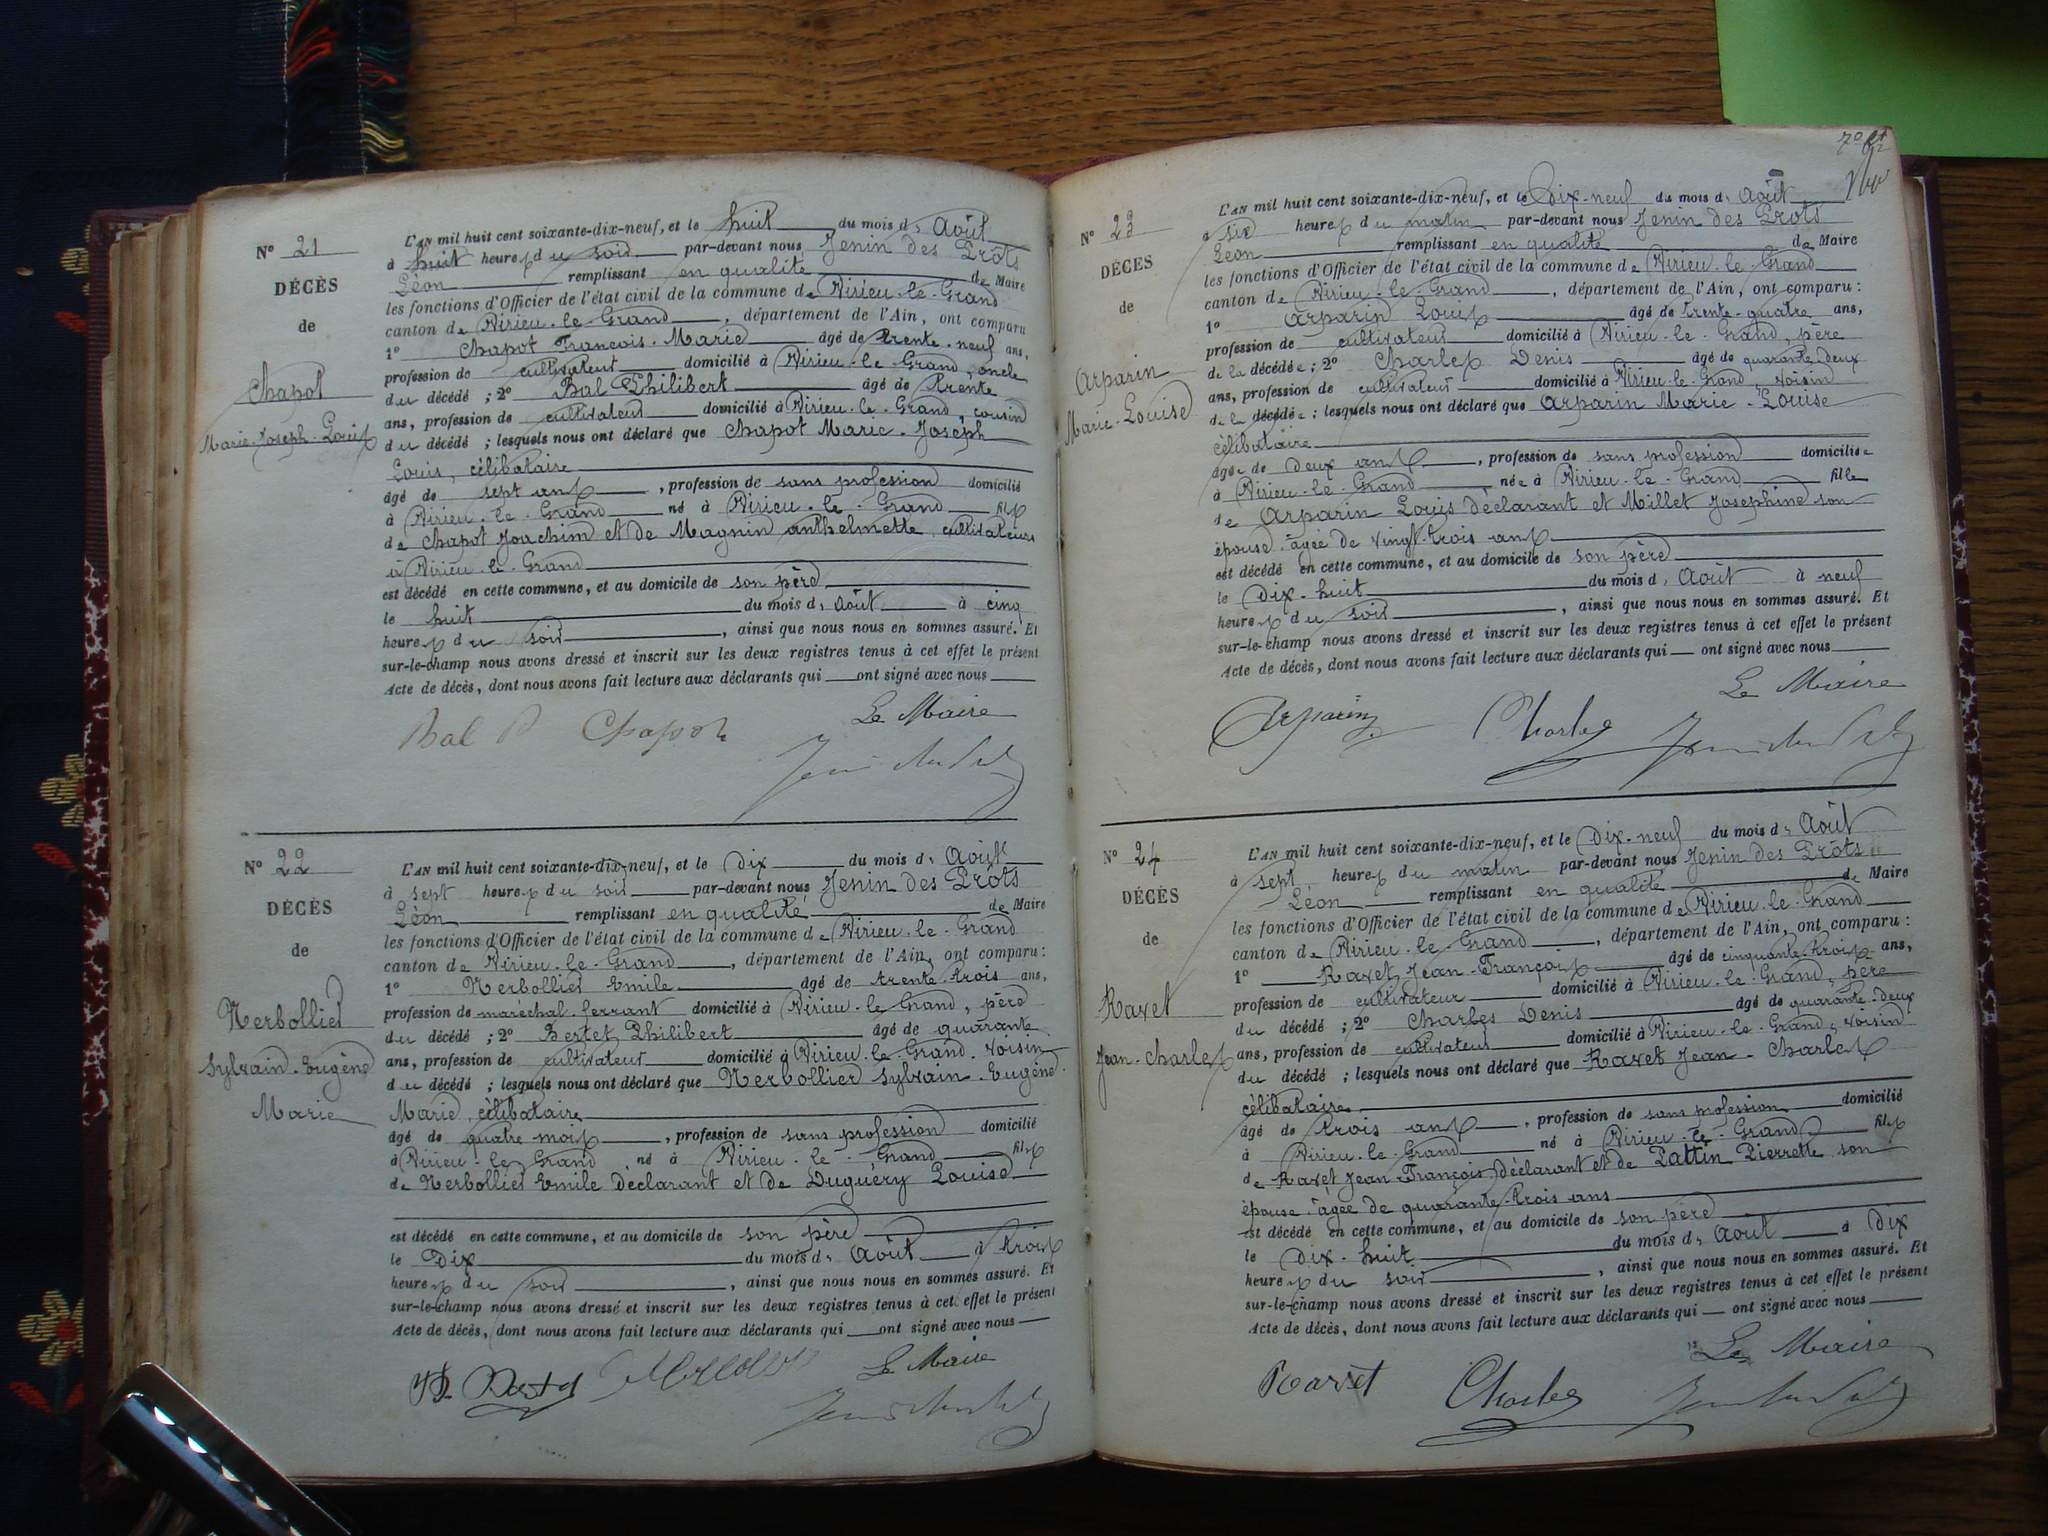 N° 21
DÉCÈS
de
Chapot
Marie-Joseph-Louis
L'AN mil huit cent soixante-dix-neuf, et le huit du mois d'Août
à huit heures du soir par-devant nous Jenin des Prôts
Léon remplissant en qualité de Maire
les fonctions d'Officier de l'état civil de la commune de Virieu-le-Grand
canton de Virieu-le-Grand, département de l'Ain, ont comparu
1° Chapot François-Marie âgé de trente-neuf ans,
profession de cultivateur domicilié à Virieu-le-Grand, oncle
du décédé ; 2° Bal Philibert âgé de trente
ans, profession de cultivateur domicilié à Virieu-le-Grand, cousin
du décédé ; lesquels nous ont déclaré que Chapot Marie-Joseph
Louis, célibataire
âgé de sept ans, profession de sans profession domicilié
à Virieu-le-Grand né à Virieu-le-Grand fils
de Chapot Joachim et de Magnin Anthelmette, cultivateurs
à Virieu-le-Grand
est décédé en cette commune, et au domicile de son père
le huit du mois d'août à cinq
heures du soir, ainsi que nous nous en sommes assuré. Et
sur-le-champ nous avons dressé et inscrit sur les deux registres tenus à cet effet le présent
Acte de décès, dont nous avons fait lecture aux déclarants qui ont signé avec nous
Le Maire
Bal P Chapot
N° 22
DÉCÈS
de
Nerbollier
Sylvain-Eugène
Marie
L'AN mil huit cent soixante-dix-neuf, et le dix du mois d'Août
à sept heures du soir par-devant nous Jenin des Prôts
Léon remplissant en qualité de Maire
les fonctions d'Officier de l'état civil de la commune de Virieu-le-Grand
canton de Virieu-le-Grand, département de l'Ain, ont comparu :
1° Nerbollier Emile âgé de trente-trois ans,
profession de maréchal-ferrant domicilié à Virieu-le-Grand, père
du décédé ; 2° Bertet Philibert âgé de quarante
ans, profession de cultivateur domicilié à Virieu-le-Grand, voisin
du décédé ; lesquels nous ont déclaré que Nerbollier Sylvain-Eugène
Marie, célibataire
âgé de quatre mois, profession de sans profession domicilié
à Virieu-le-Grand né à Virieu-le-Grand fils
de Nerbollier Emile déclarant et de Duguéry Louise
est décédé en cette commune, et au domicile de son père
le Dix du mois d'Août à trois
heures du soir, ainsi que nous nous en sommes assuré. Et
sur-le-champ nous avons dressé et inscrit sur les deux registres tenus à cet effet le présent
Acte de décès, dont nous avons fait lecture aux déclarants qui ont signé avec nous
Le Maire
N° 23
DÉCÈS
de
Arparin
Marie-Louise
L'AN mil huit cent soixante-dix-neuf, et le Dix-neuf du mois d'Août
à six heures du matin par-devant nous Jenin des Prôts
Léon remplissant en qualité de Maire
les fonctions d'Officier de l'état civil de la commune de Virieu-le-Grand
canton de Virieu-le-Grand, département de l'Ain, ont comparu :
1° Arparin Louis âgé de trente-quatre ans,
profession de cultivateur domicilié à Virieu-le-Grand, père
de la décédée ; 2° Charles Denis âgé de quarante-deux
ans, profession de cultivateur domicilié à Virieu-le-Grand, voisin
de la décédée ; lesquels nous ont déclaré que Arparin Marie-Louise
célibataire
âgée de deux ans, profession de sans profession domiciliée
à Virieu-le-Grand née à Virieu-le-Grand fille
de Arparin Louis déclarant et Millet Josephine son
épouse âgée de vingt-trois ans
est décédé en cette commune, et au domicile de son père
le Dix-huit du mois d'Août à neuf
heures du soir, ainsi que nous nous en sommes assuré. Et
sur-le-champ nous avons dressé et inscrit sur les deux registres tenus à cet effet le présent
Acte de décès, dont nous avons fait lecture aux déclarants qui ont signé avec nous
Le Maire
Arparin Charles
N° 24
DÉCÈS
de
Ravet
Jean-Charles
L'AN mil huit cent soixante-dix-neuf, et le Dix-neuf du mois d'Août
à sept heures du matin par-devant nous Jenin des Prôts
Léon remplissant en qualité de Maire
les fonctions d'Officier de l'état civil de la commune de Virieu-le-Grand
canton de Virieu-le-Grand, département de l'Ain, ont comparu :
1° Ravet Jean-François âgé de cinquante-trois ans,
profession de cultivateur domicilié à Virieu-le-Grand, père
du décédé ; 2° Charles Denis âgé de quarante-deux
ans, profession de cultivateur domicilié à Virieu-le-Grand, voisin
du décédé ; lesquels nous ont déclaré que Ravet Jean-Charles
célibataire
âgé de trois ans, profession de sans profession domicilié
à Virieu-le-Grand né à Virieu-le-Grand fils
de Ravet Jean François déclarant et de Pattin Pierrette son
épouse âgée de quarante-trois ans
est décédé en cette commune, et au domicile de son père
le Dix-huit du mois d'Août à Dix
heures du soir, ainsi que nous nous en sommes assuré. Et
sur-le-champ nous avons dressé et inscrit sur les deux registres tenus à cet effet le présent
Acte de décès, dont nous avons fait lecture aux déclarants qui ont signé avec nous
Le Maire
Ravet Charles